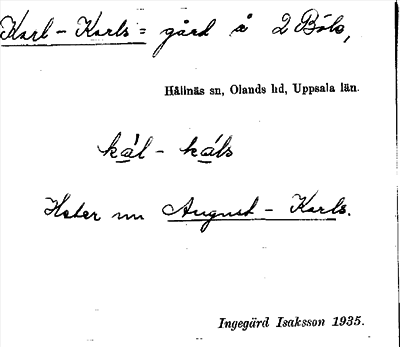 Karl - Karls = gård å 2 Böle,
Hållnäs sn, Olands hd, Uppsala län.
kál - káls
Heter nu August - Karls.
Ingegärd Isaksson 1935.